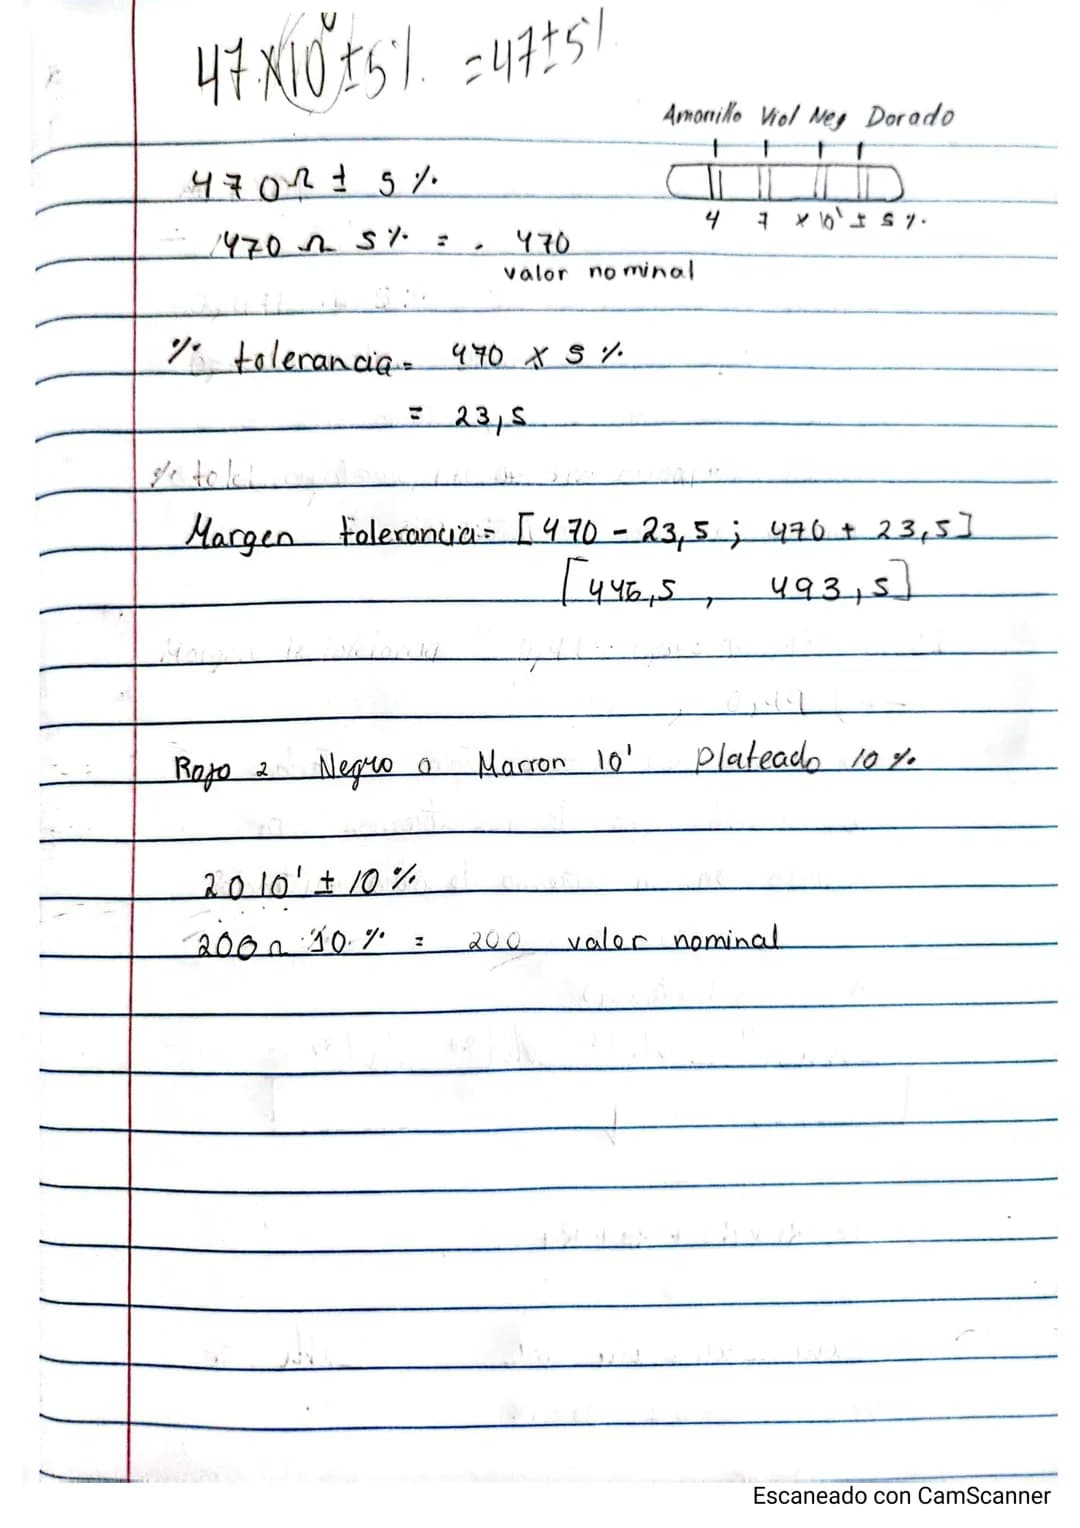 47 x 10⁰ ± 5% = 47 ± 5%
Amarillo Viol Neg Dorado
4 7 x 10¹ ± 5 %.
470 Ω ± 5 %.
470 Ω 5% = 470
valor nominal
% tolerancia = 470 x 5 %.
= 23,5
% tole
Margen tolerancia = [470 - 23,5 ; 470 + 23,5]
[446,5 , 493,5]
Rojo 2 Negro 0 Marron 10¹ Plateado 10 %.
20 10¹ ± 10 %.
200 Ω 10 % = 200 valor nominal
Escaneado con CamScanner